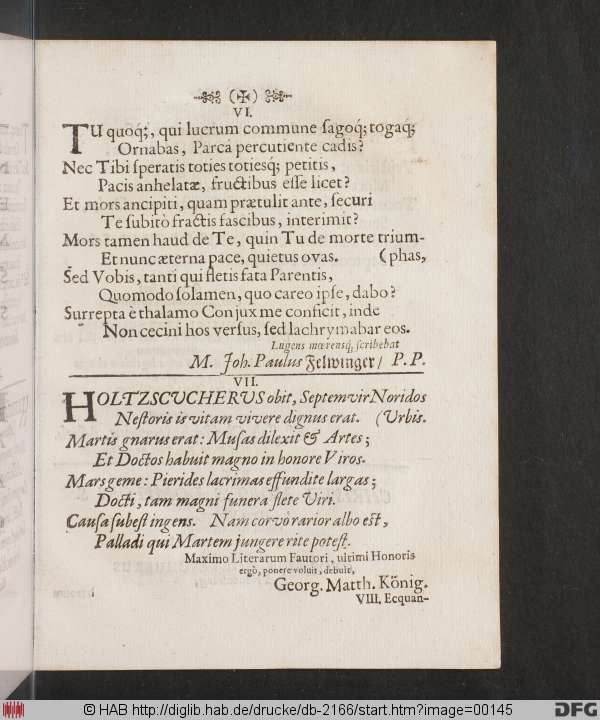 (✠)
VI.
TU quoq́;, qui lucrum commune ſagoq́; togaq́;
Ornabas, Parca percutiente cadis?
Nec Tibi ſperatis toties totiesq́; petitis,
Pacis anhelatæ, fructibus eſſe licet?
Et mors ancipiti, quam prætulit ante, ſecuri
Te ſubitò fractis faſcibus, interimit?
Mors tamen haud de Te, quin Tu de morte trium-
Et nunc æterna pace, quietus ovas. (phas,
Sed Vobis, tanti qui fletis fata Parentis,
Quomodo ſolamen, quo careo ipſe, dabo?
Surrepta è thalamo Conjux me conficit, inde
Non cecini hos verſus, ſed lachrymabar eos.
Lugens mœrensq́, ſcribebat
M. Joh. Paulus Felwinger/ P. P.
VII.
HOLTZSCUCHERUS obit, Septemvir Noridos
Neſtoris is vitam vivere dignus erat. (Urbis.
Martis gnarus erat: Muſas dilexit & Artes;
Et Doctos habuit magno in honore Viros.
Mars geme: Pierides lacrimas effundite largas;
Docti, tam magni funera flete Viri.
Cauſa ſubeſt ingens. Nam corvo rarior albo eſt,
Palladi qui Martem jungere rite poteſt.
Maximo Literarum Fautori, ultimi Honoris
ergò, ponere voluit, debuit,
Georg. Matth. König.
VIII. Ecquan-
© HAB http://diglib.hab.de/drucke/db-2166/start.htm?image=00145
DFG